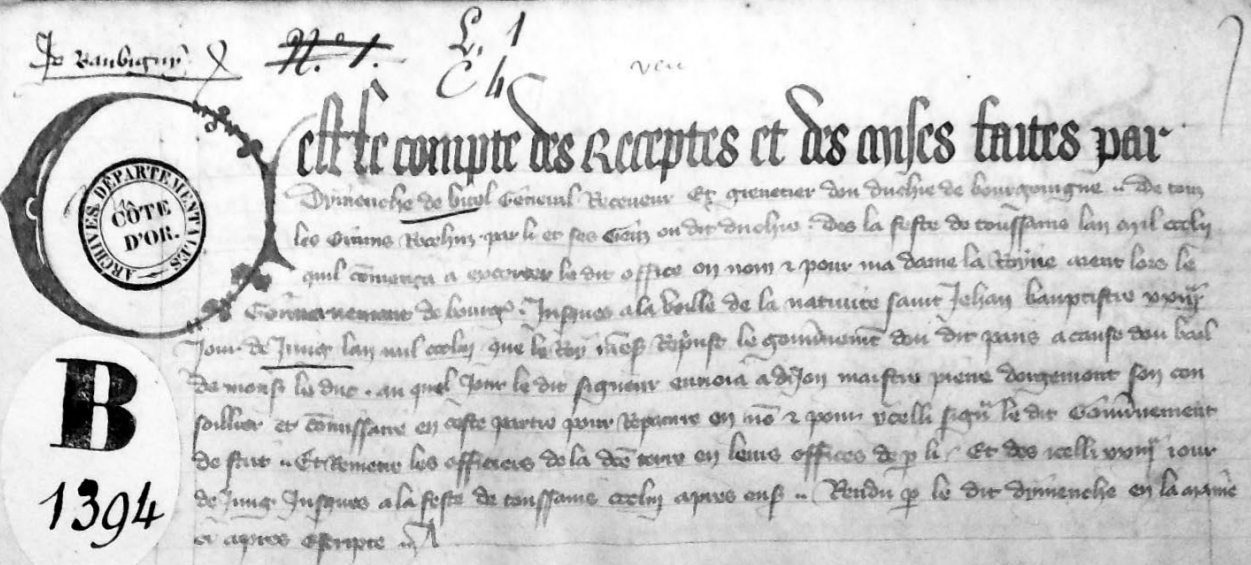 De Baubigny
N.° 1.
L. 1
C 4
veu
C'est le compte des Receptes et des mises faites par
Dymenche de Vitel General Receveur Et grenetier dou duchie de bourgoingne .. De touz
les Grains Receuz par li et ses Genz ou dit duchie . Des la feste de toussains lan mil cccl
quil comença a excercer le dit office ou nom & pour ma dame la Royne aient lors le
Gouvernement de bourg. Jusques a la voille de la nativite saint Jehan bauptistre xxiij
Jour de Juing lan mil ccc que le Roy Reprist le gouvernement dou dit pais a cause dou bail
de mons. le duc . au quel Jour le dit signeur envoia a diJon maistre pierre dorgemont son con
seillier et commissaire en ceste partie pour Repanre en nom & pour ycelli le dit Gouvernement
de fait .. Et Remetre les officiers de la dite terre en leurs offices de p li / Et des icelli xxiiij jour
de Juing Jusques a la feste de toussains ccc apres ens. .. Rendu p le dit dymenche en la maniere
ci apres escripte
ARCHIVES DÉPARTEMENTALES
CÔTE
D'OR.
B
1394